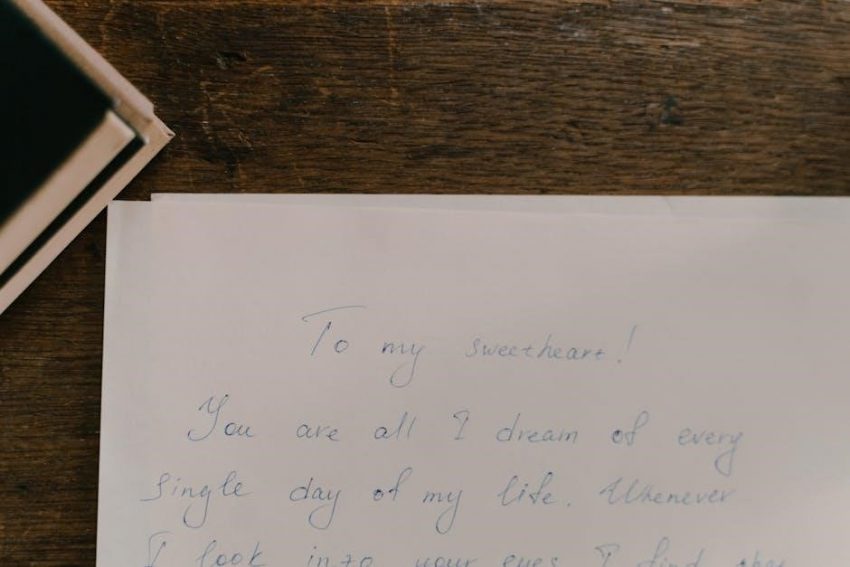 To my sweetheart!
You are all I dream of every
single day of my life. Whenever
I look into your eyes I find